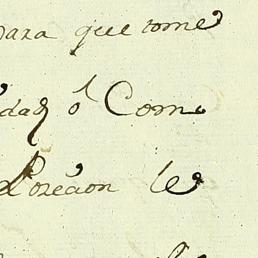 para que tome
dad ó Com
Porcion le